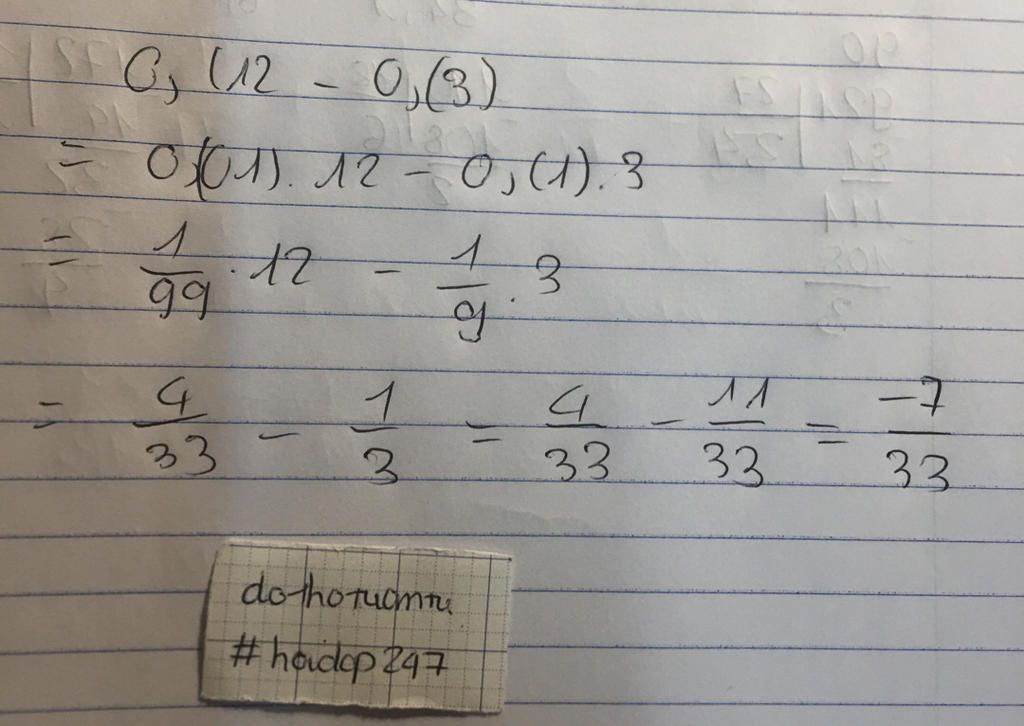 0, (12 - 0,(3)
= 0,(01). 12 - 0,(1).3
= 1/99 . 12 - 1/9 . 3
= 4/33 - 1/3 = 4/33 - 11/33 = -7/33
#hoidap247